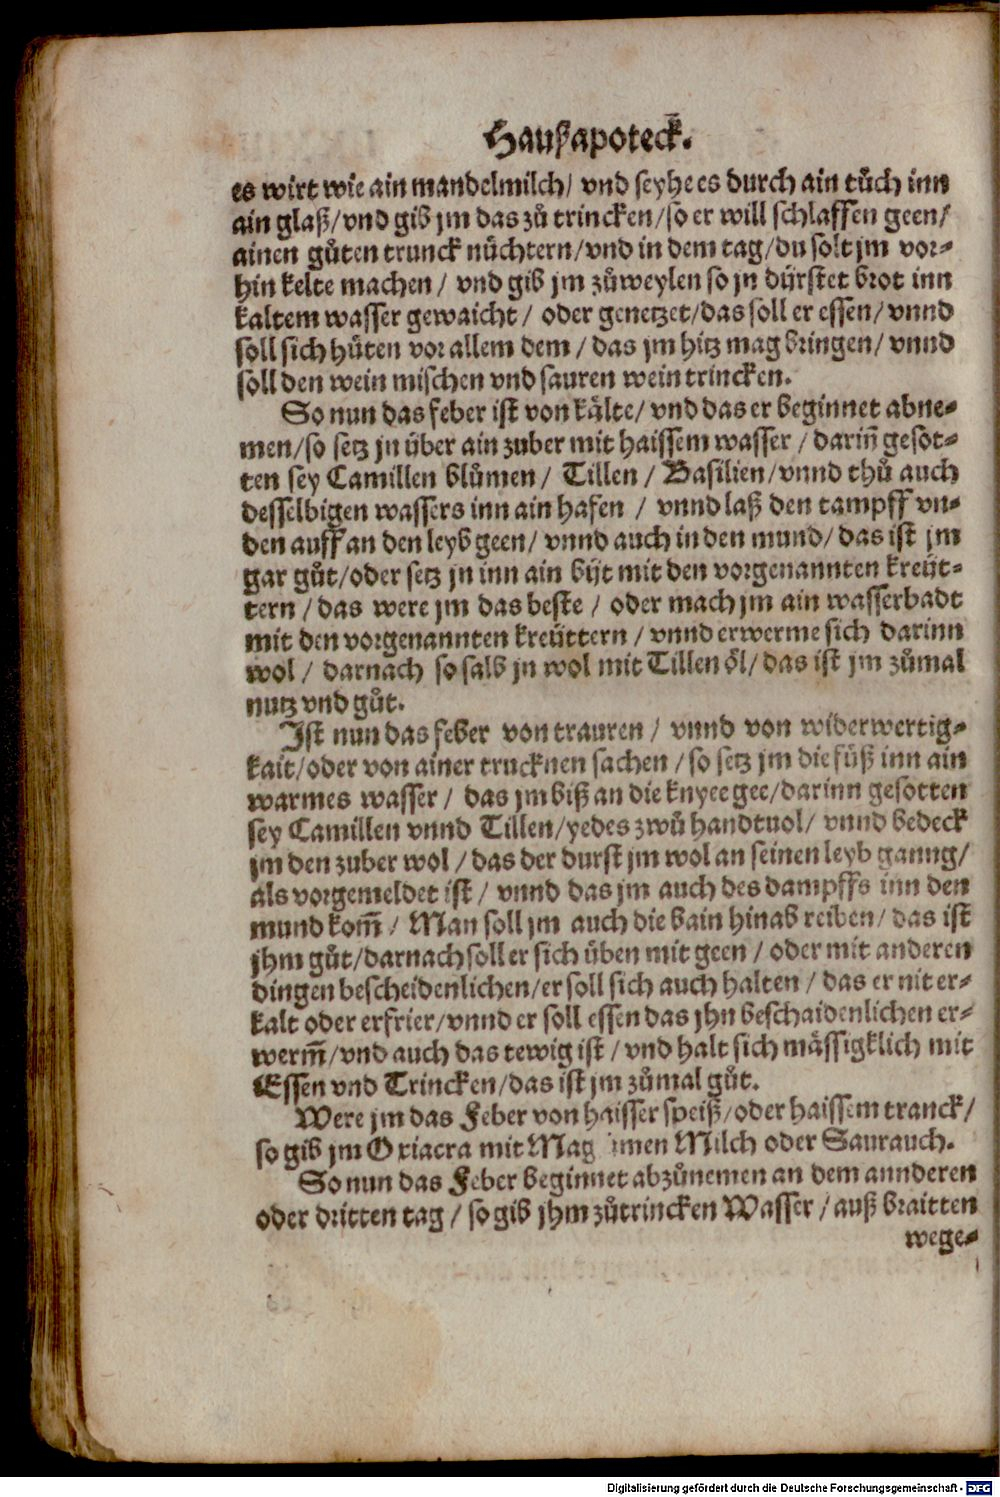 Haußapoteck.
es wirt wie ain mandelmilch/ vnd seyhe es durch ain tůch inn
ain glaß/vnd gib jm das zů trincken/so er will schlaffen geen/
ainen gůten trunck nůchtern/vnd in dem tag/du solt jm vor⸗
hin kelte machen/ vnd gib jm zůweylen so jn dürstet brot inn
kaltem wasser gewaicht/ oder genetzet/das soll er essen/ vnnd
soll sich hüten vor allem dem/ das jm hitz mag bringen/ vnnd
soll den wein mischen vnd sauren wein trincken.
So nun das feber ist von kälte/ vnd das er beginnet abne⸗
men/so setz jn über ain zuber mit haissem wasser/ dariñ gesot⸗
ten sey Camillen blůmen/ Tillen/ Basilien/vnnd thů auch
desselbigen wassers inn ain hafen/ vnnd laß den tampff vn⸗
den auff an den leyb geen/ vnnd auch in den mund/ das ist jm
gar gůt/oder setz jn inn ain büt mit den vorgenannten kreüt⸗
tern/ das were jm das beste/ oder mach jm ain wasserbadt
mit den vorgenannten kreüttern/ vnnd erwerme sich darinn
wol/ darnach so salb jn wol mit Tillen öl/ das ist jm zůmal
nutz vnd gůt.
Ist nun das feber von trauren/ vnnd von widerwertig⸗
kait/oder von ainer trucknen sachen/ so setz jm die füß inn ain
warmes wasser/ das jm biß an die knyee gee/darinn gesotten
sey Camillen vnnd Tillen/yedes zwů handtuol/ vnnd bedeck
jm den zuber wol/ das der durst jm wol an seinen leyb ganng/
als vorgemeldet ist/ vnnd das jm auch des dampffs inn den
mund kom̃/ Man soll jm auch die bain hinab reiben/ das ist
jhm gůt/darnach soll er sich üben mit geen/ oder mit anderen
dingen bescheidenlichen/er soll sich auch halten/ das er nit er⸗
kalt oder erfrier/vnnd er soll essen das jhn beschaidenlichen er⸗
werm̃/vnd auch das tewig ist/ vnd halt sich mässigklich mit
Essen vnd Trincken/das ist jm zůmal gůt.
Were jm das Feber von haisser speiß/oder haissem tranck/
so gib jm Oxiacra mit Mag imen Milch oder Saurauch.
So nun das Feber beginnet abzůnemen an dem annderen
oder dritten tag/ so gib jhm zůtrincken Wasser/ auß braitten
wege⸗
Digitalisierung gefördert durch die Deutsche Forschungsgemeinschaft - DFG